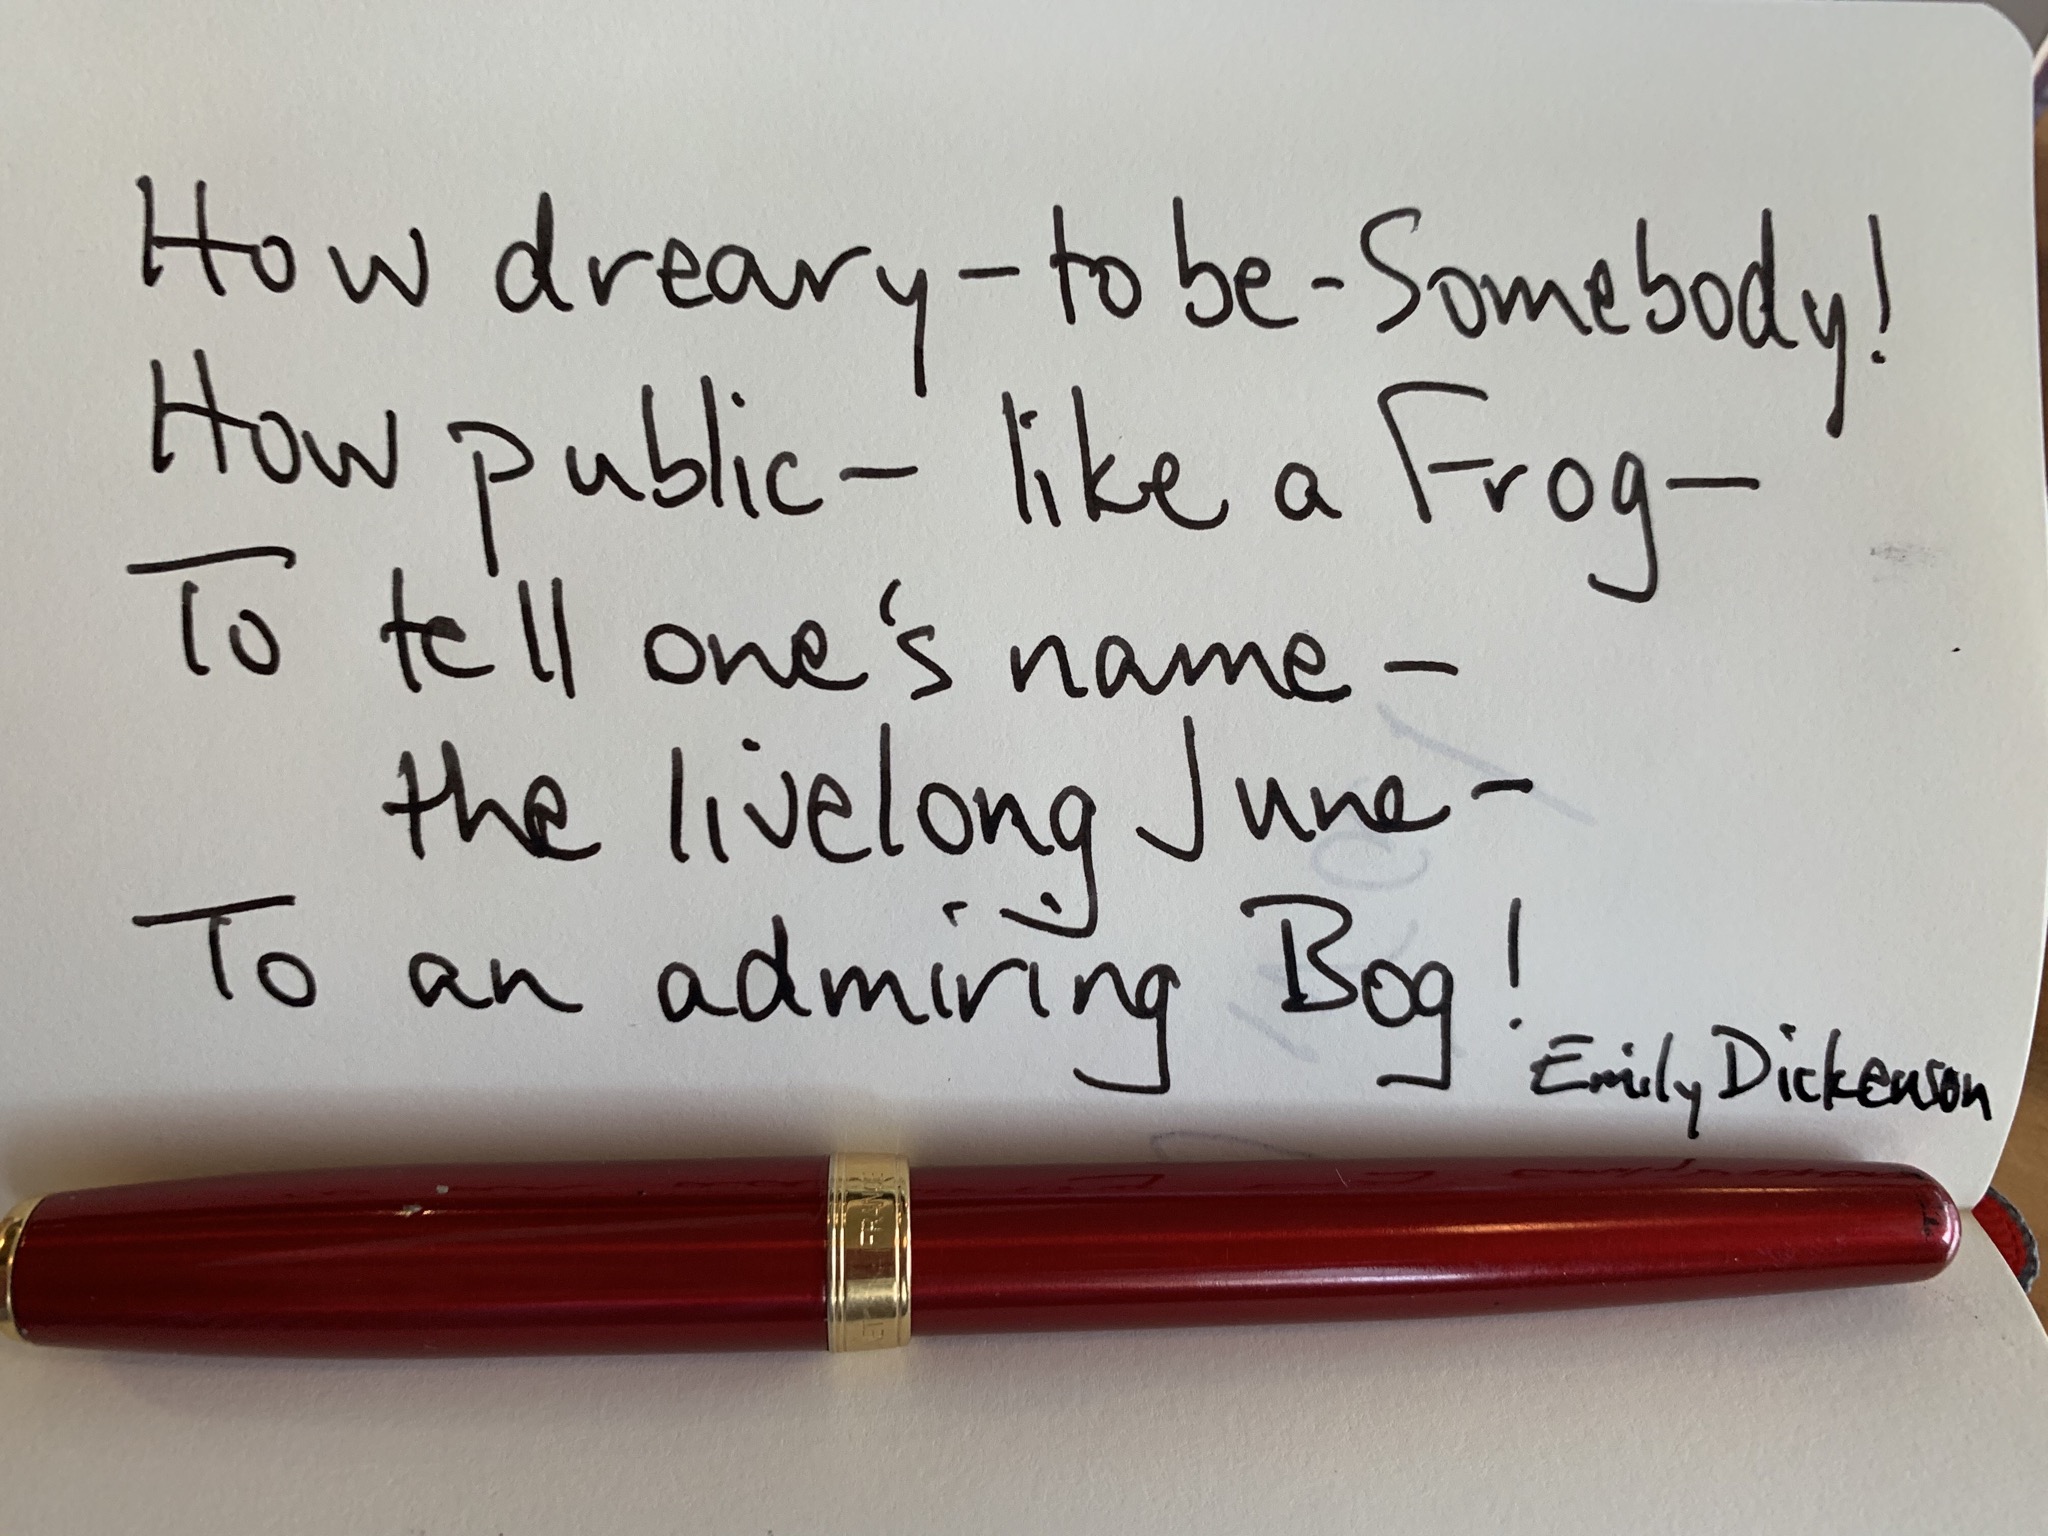 How dreary - to be - Somebody!
How public - like a Frog -
To tell one's name -
the livelong June -
To an admiring Bog!
Emily Dickenson
FRANCE